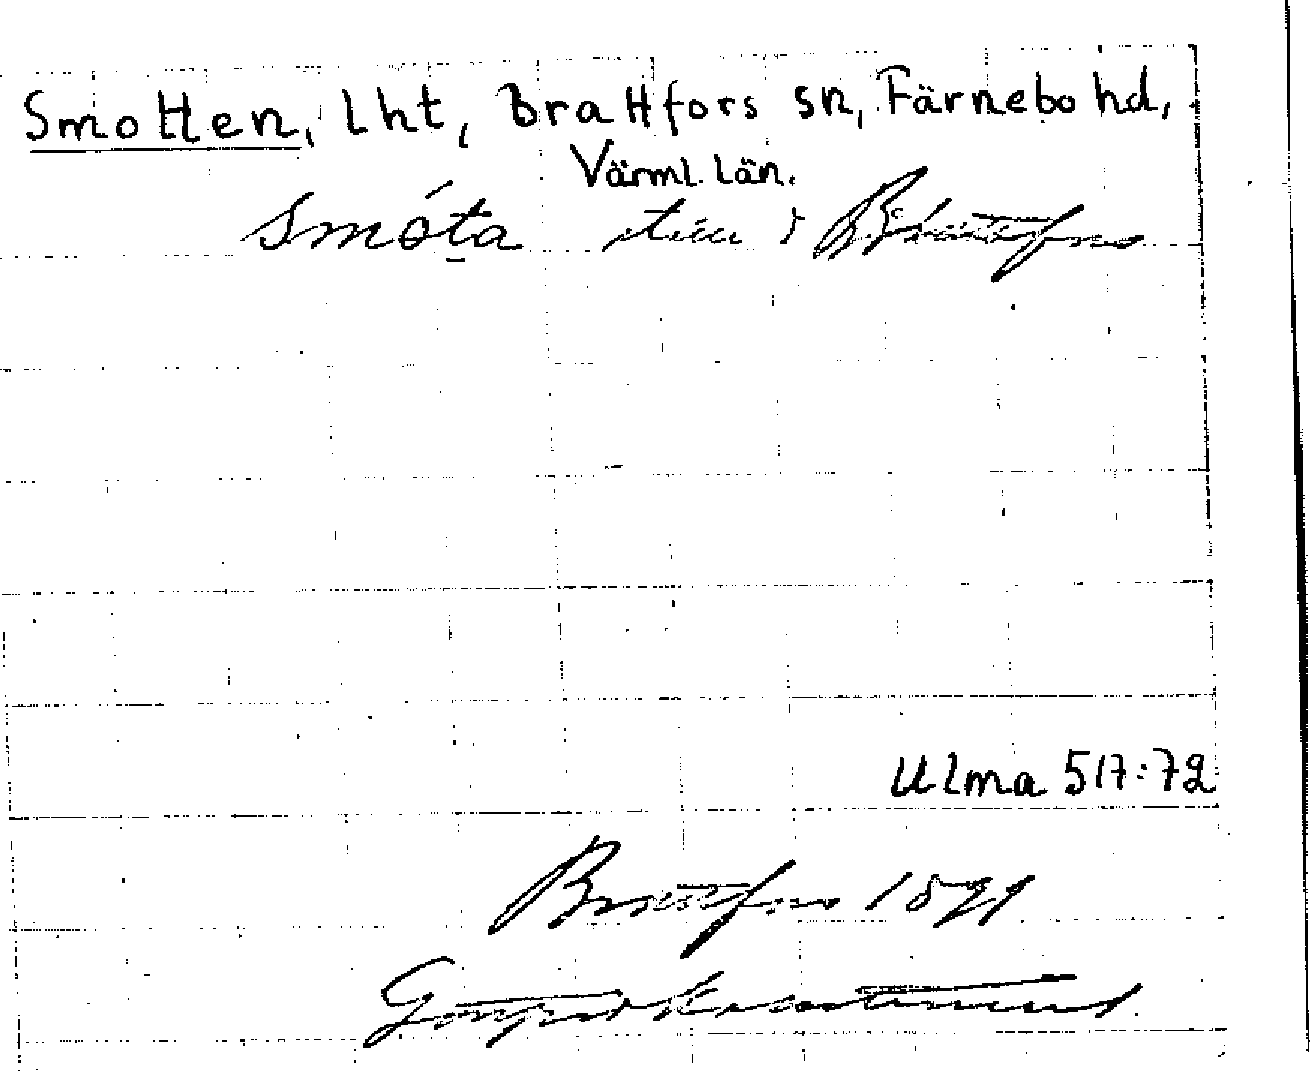 Smotten, lht, Brattfors sn, Färnebo hd,
Värml. län.
Smóta i Brattfors
Ulma 517:72
Brattfors 1899